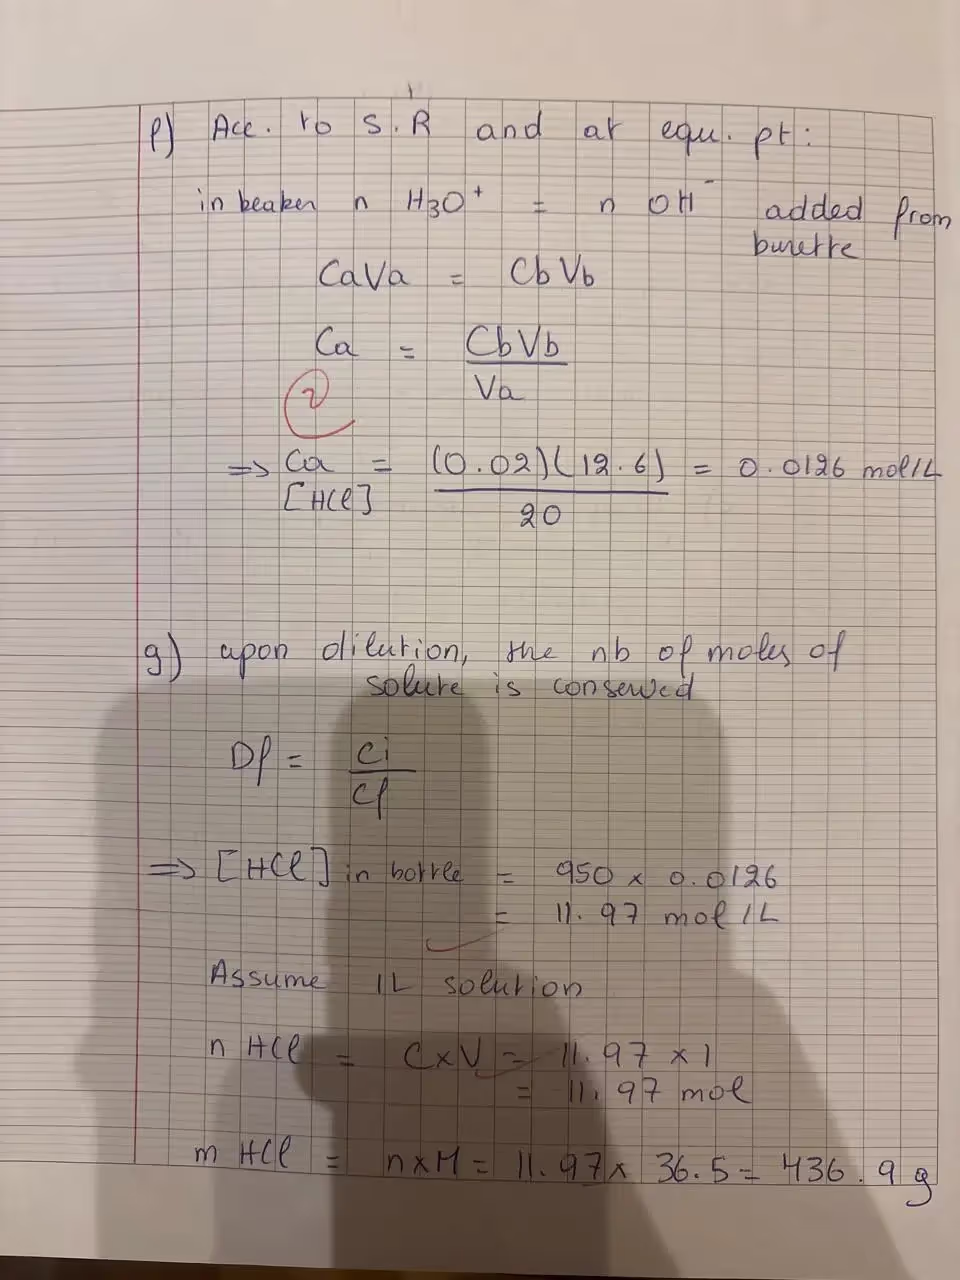 f) Acc. to S.R and at equ. pt:
in beaker n H3O⁺ = n OH⁻ added from
burette
CaVa = CbVb
Ca = CbVb
Va
2
=> Ca = (0.02)(12.6) = 0.0126 mol/L
[HCl] 20
g) upon dilution, the nb of moles of
solute is conserved
Df = Ci
Cf
=> [HCl] in bottle = 950 x 0.0126
= 11.97 mol/L
Assume 1L solution
n HCl = CxV = 11.97 x 1
= 11.97 mol
m HCl = nxM = 11.97x 36.5 = 436.9 g